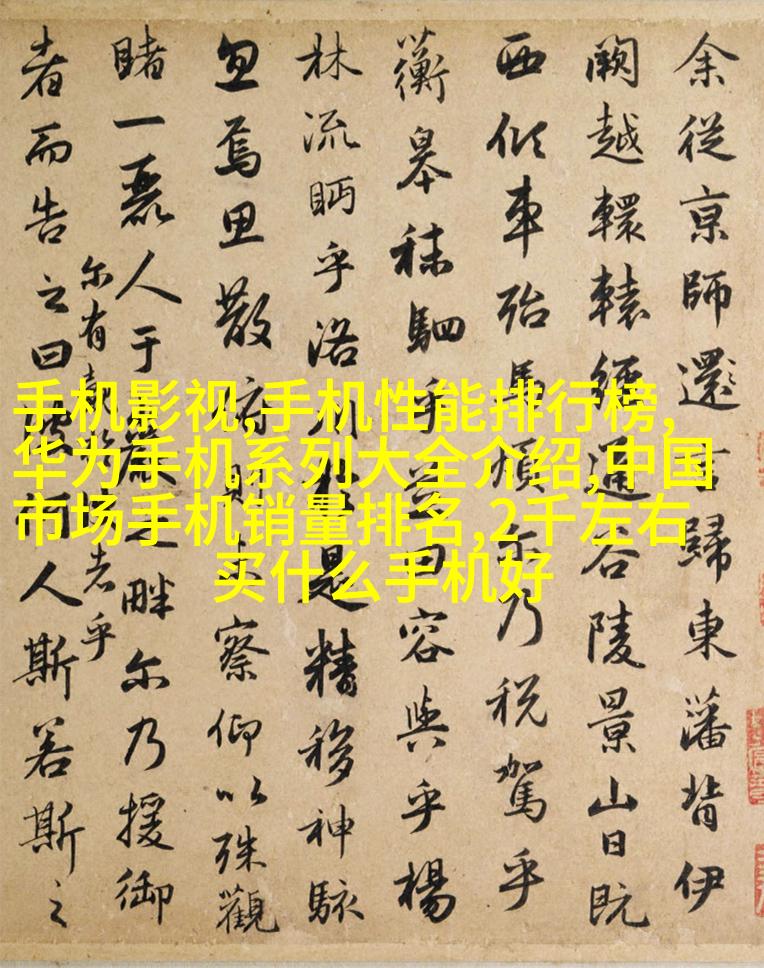 手机影视,手机性能排行榜,
华为手机系列大全介绍,中国
市场手机销量排名,2千左右
买什么手机好
余從京師還言歸東藩背伊
闕越轘轅經通谷陵景山日既
西傾車殆馬煩尔乃税駕乎
蘅皋秣駟乎芝田容與乎楊
林流眄乎洛川於是精移神駭
忽焉思散俯則未察仰以殊觀
睹一麗人于巖之畔尔乃援御
者而告之曰彼何人斯若斯之
尔有者乎